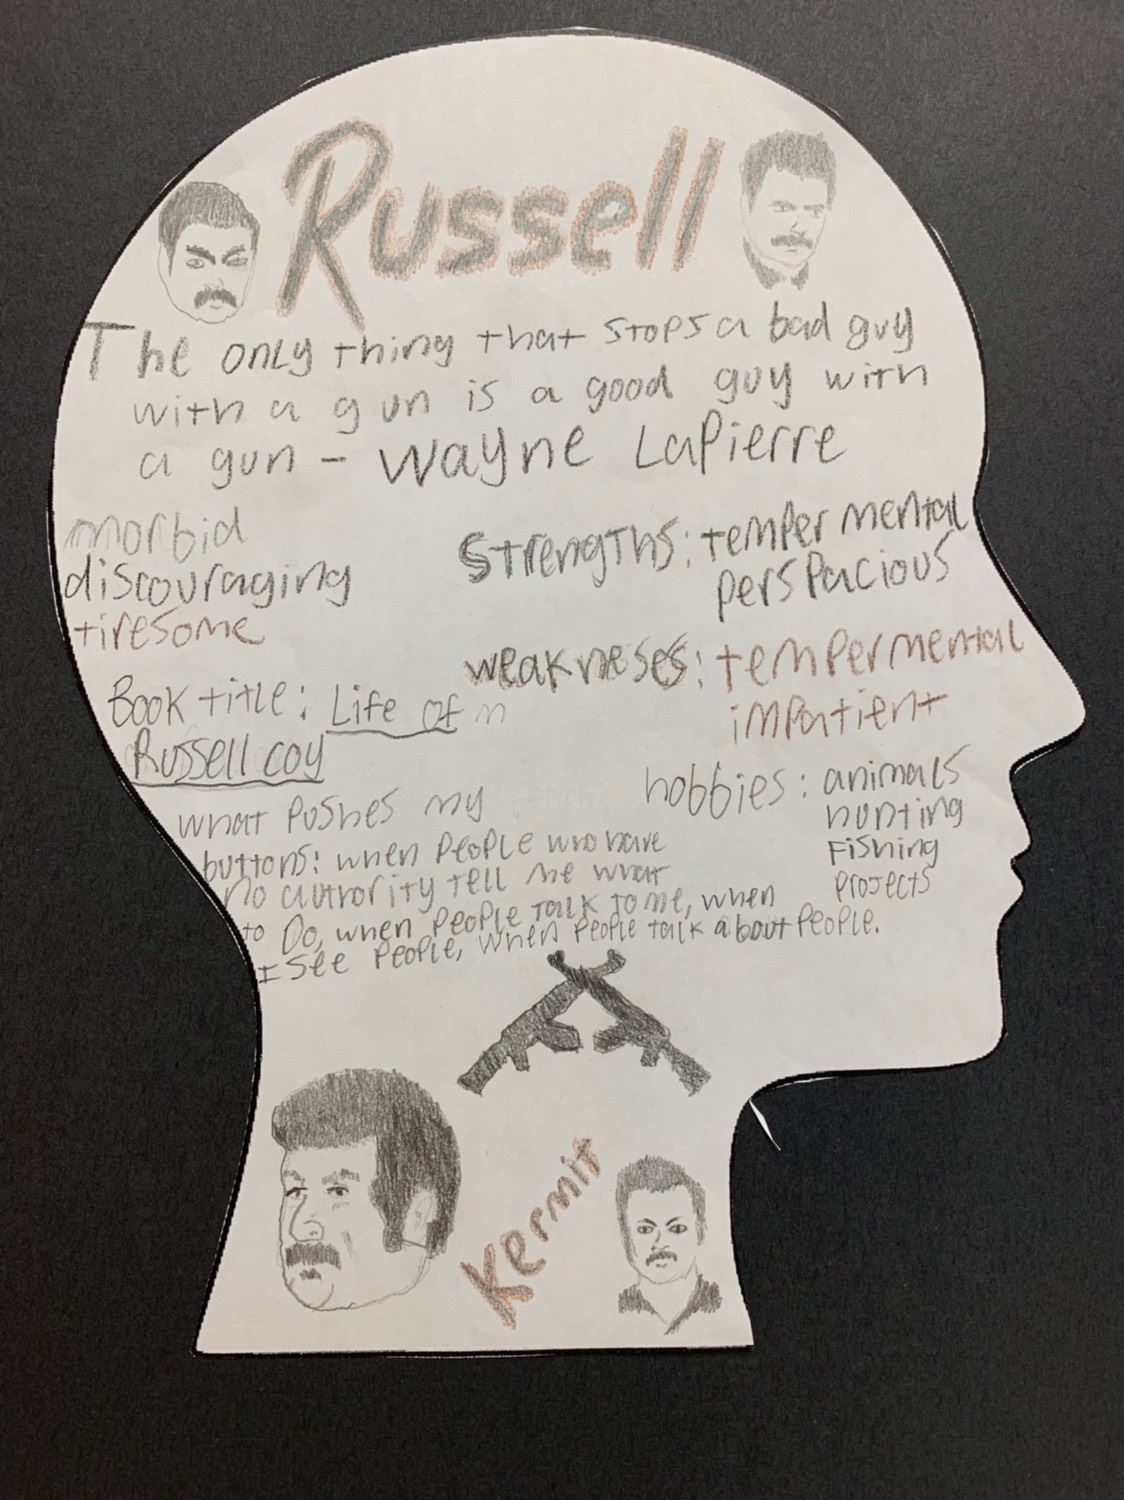 Russell
The only thing that stops a bad guy
with a gun is a good guy with
a gun - Wayne LaPierre
morbid
discouraging
tiresome
Strengths: tempermental
perspacious
weakneses: tempermental
impatient
Book title: Life of
Russell coy
hobbies: animals
hunting
Fishing
projects
what pushes my
buttons: when people who have
no authority tell me what
to Do, when people talk to me, when
I see people, when people talk about people.
Kermit